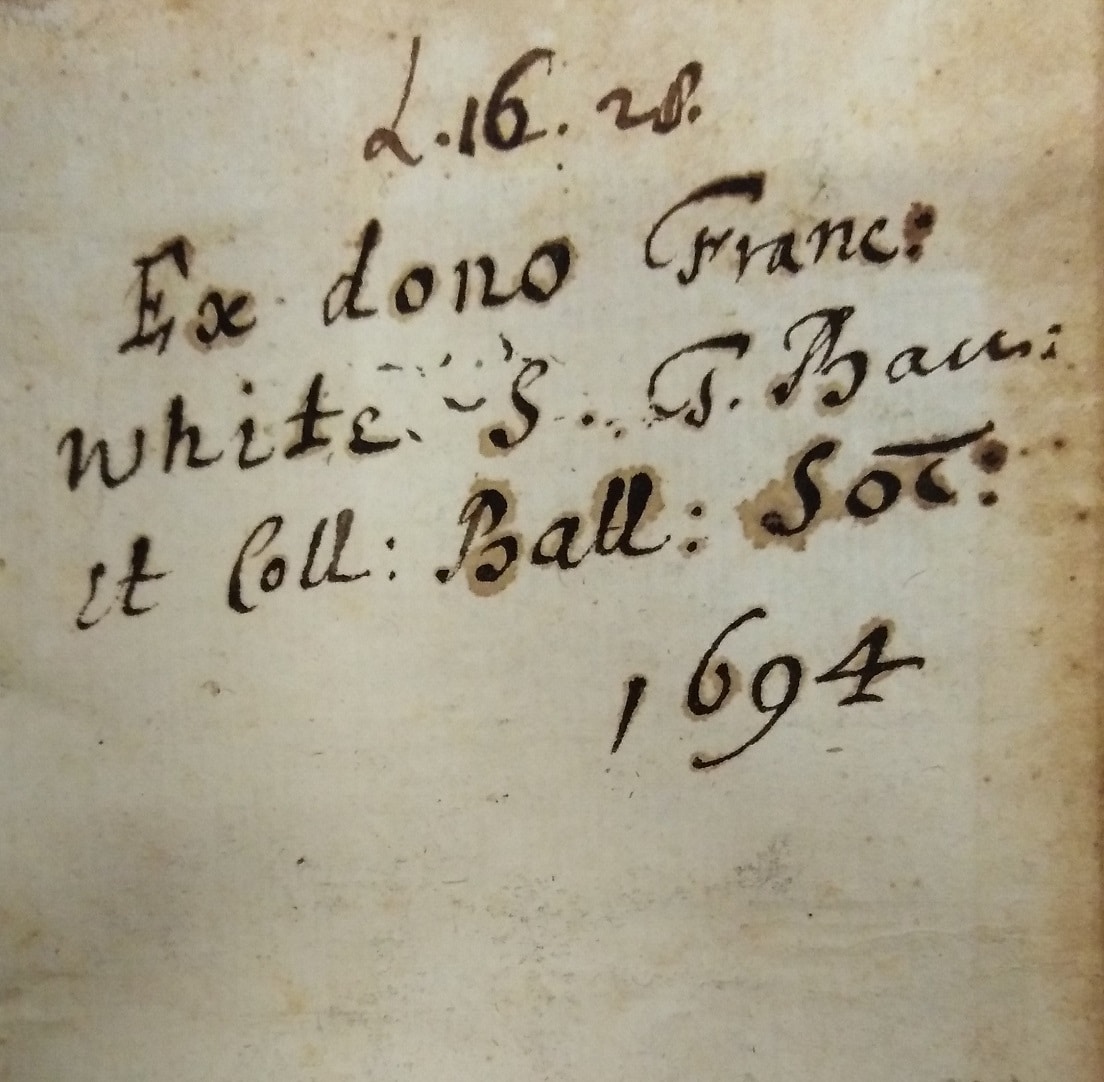 L.16.28.
Ex dono Franc:
White. S. T. Bacc:
et Coll: Ball: Soc̄:
1694